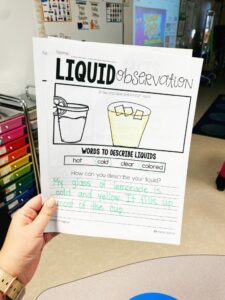 Name:
LIQUID observation
WORDS TO DESCRIBE LIQUIDS
hot cold clear colored
How can you describe your liquid?
My glass of lemonade is
cold and yellow. It fills up
most of the cup.